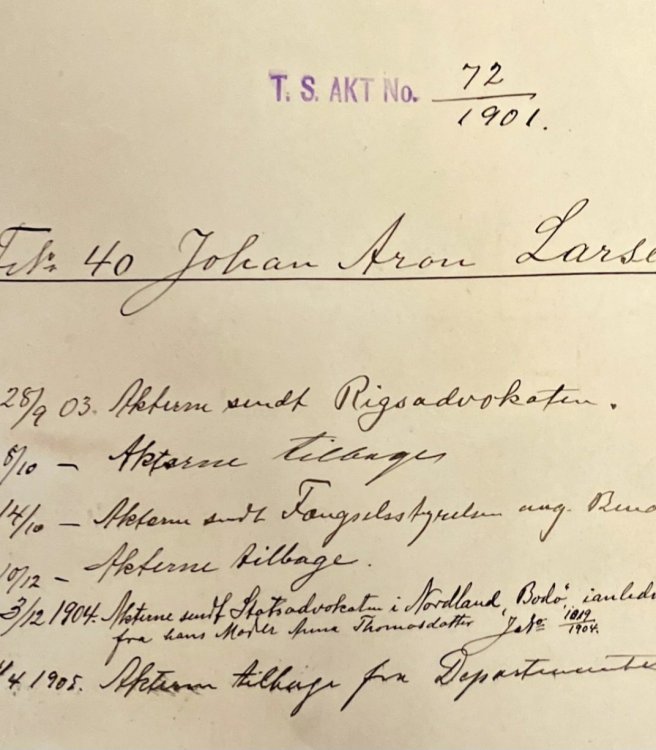 T. S. AKT No. 72
1901.
No 40 Johan Aron Larse
28/9 03. Akterne sendt Rigsadvokaten.
8/10 — Akterne tilbage
14/10 — Akterne sendt Fængselsstyrelsen ang.
10/12 — Akterne tilbage.
3/12 1904. Akterne sendt Statsadvokaten i Nordland, Bodø, ianledn
fra hans Moder Anna Thomasdatter JNo 1819
1904.
4 1905. Akterne tilbage fra Departemente